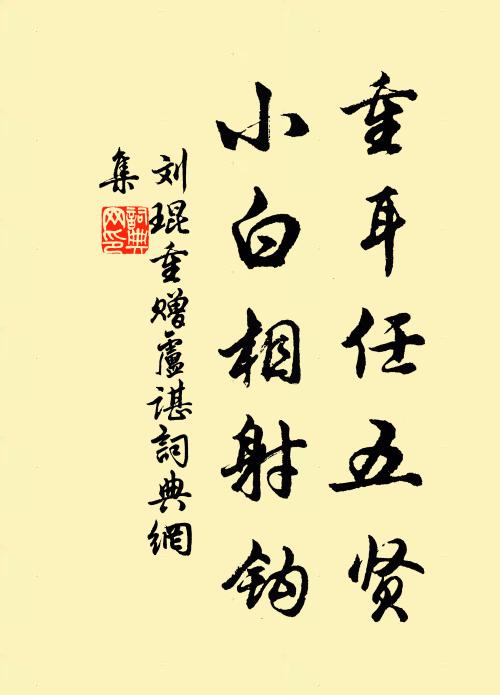 重耳任五贤
小白相射钩
刘琨重赠卢谌詞典網
集
詞典
网印